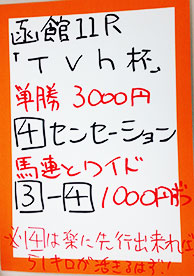 函館11R
「TVh杯」
単勝 3000円
4センセーション
馬連とワイド
3-4 1000円ずつ
※4は楽に先行出来れば
51キロが活きるはず!